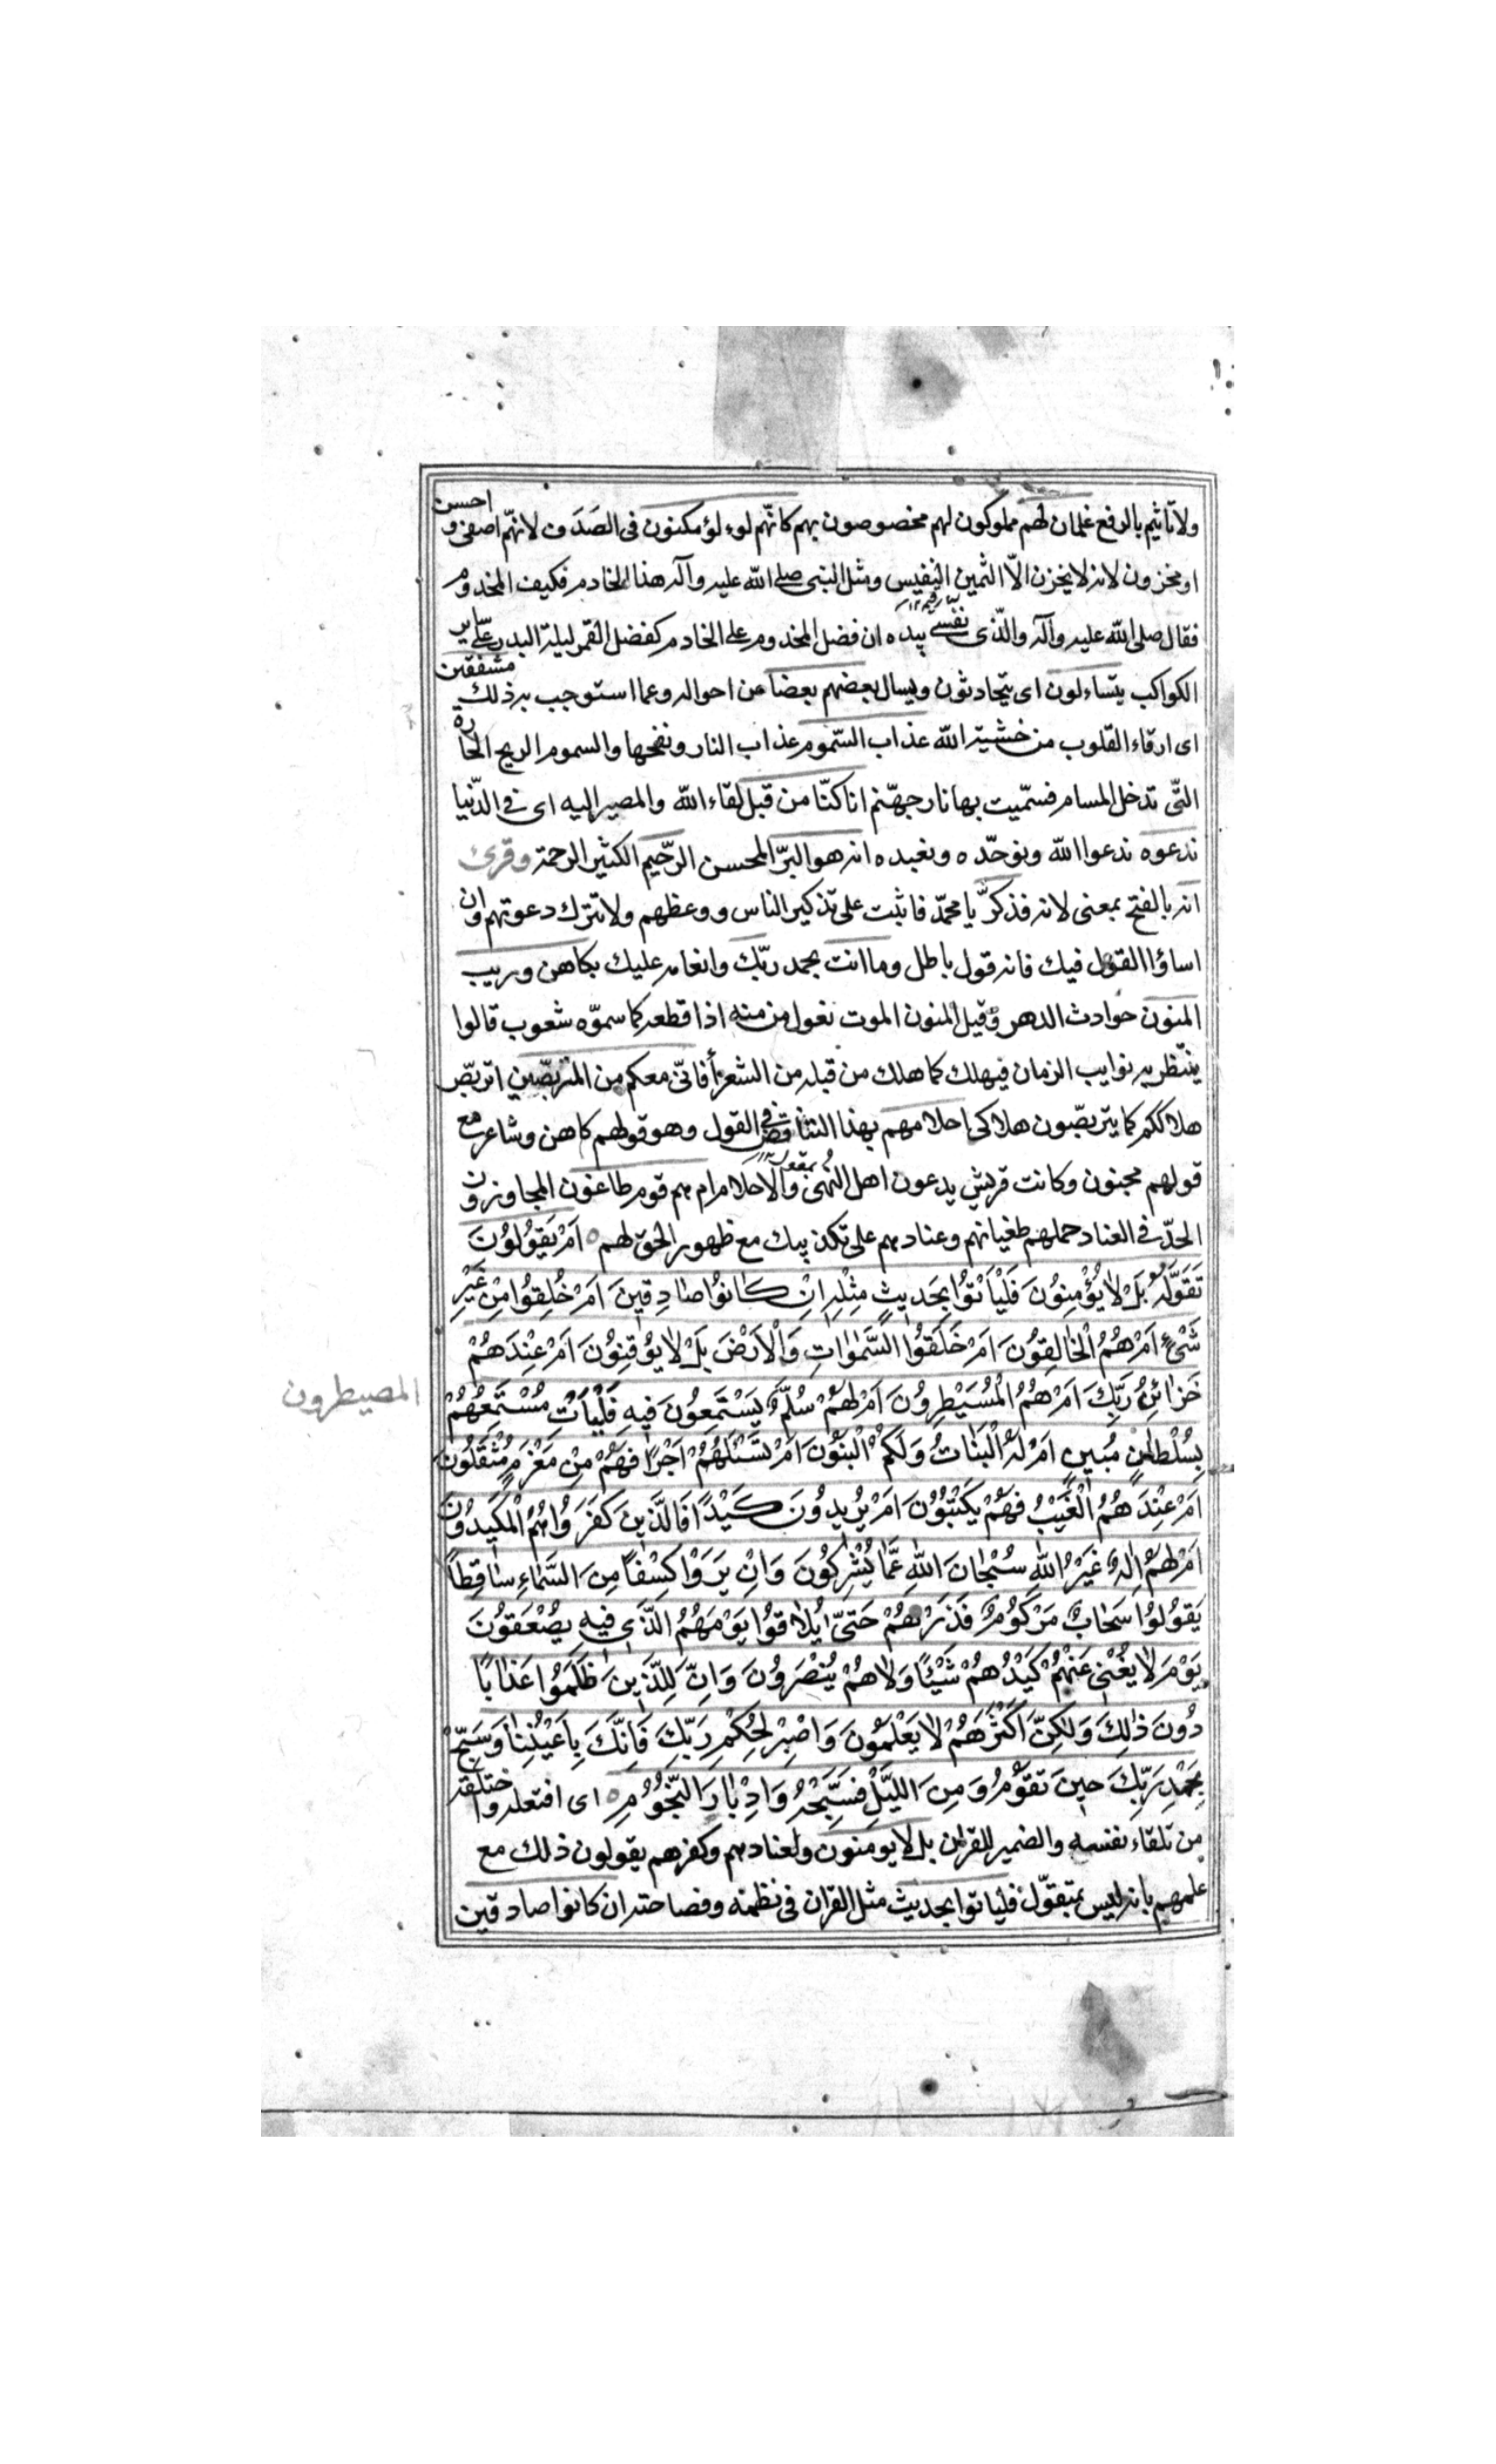 ولا تأثيم بالرفع غلمان لهم مملوكون لهم مخصوصون بهم كانّهم لوءلؤ مكنون فى الصَدَف لانهّم اصفى و احسن
او مخزون لانه لا يخزن الّا الثمين النفيس وسئل النبى صلى اللّه عليه وآله هذا الخادم فكيف المخدوم
فقال صلى اللّه عليه وآله والّذى نفسى بيده ان فضل المخدوم على الخادم كفضل القمر ليلة البدر على ساير
الكواكب يتساءلون اى يتحادثون ويسال بعضهم بعضا عن احواله وعما استوجب به ذلك مشفقين
اى ارقاء القلوب من خشية اللّه عذاب السّموم عذاب النار ونفحها والسموم الريح الحارة
التّى تدخل المسام فسمّيت بها نار جهنّم انا كنّا من قبل لقاء اللّه والمصير اليه اى فى الدّنيا
ندعوه ندعوا اللّه ونوحّده ونعبده انه هو البرّ المحسن الرّحيم الكثير الرحمة وقرئ
انه بالفتح بمعنى لانه فذكرّ يا محمدّ فاثبت على تذكير الناس ووعظهم ولا تترك دعوتهم وان
اساؤا القول فيك فانه قول باطل وما انت بحمد ربّك وانعامه عليك بكاهن وريب
المنون حوادث الدهر وقيل المنون الموت نعول من منه اذا قطعه كما سموّه شعوب قالوا
ينتظر به نوايب الزمان فيهلك كما هلك من قبله من الشعرأ فانّى معكم من المتربصّين اتربصّ
هلاككم كما يتربصّون هلاكى احلامهم بهذا التناقض فى القول وهو قولهم كاهن وشاعر مع
قولهم مجنون وكانت قريش يدعون اهل النُهى والاحلام ام هم قوم طاغون المجاوزون
الحدّ فى العناد حملهم طغيانهم وعنادهم على تكذيبك مع ظهور الحق لهم ○ اَمْ يَقُولُونَ
تَقَوَّلَهُ بَلْ لاٰ يُؤْمِنُونَ فَلْيَأْتُوا بِحَديثٍ مِثْلِهِ اِنْ كٰانُوا صٰادِقينَ اَمْ خُلِقُوا مِنْ غَيْرِ
شَىْءٍ اَمْ هُمُ الْخٰالِقُونَ اَمْ خَلَقُوا السَّمٰوٰاتِ وَالْاَرْضَ بَلْ لاٰ يُوقِنُونَ اَمْ عِنْدَهُمْ
خَزٰائِنُ رَبِّكَ اَمْ هُمُ الْمُسَيْطِرُونَ اَمْ لَهُمْ سُلَّمٌ يَسْتَمِعُونَ فيهِ فَلْيَأْتِ مُسْتَمِعُهُمْ
المصيطرون
بِسُلْطٰانٍ مُبينٍ اَمْ لَهُ الْبَنٰاتُ وَلَكُمُ الْبَنُونَ اَمْ تَسْئَلُهُمْ اَجْرًا فَهُمْ مِنْ مَغْرَمٍ مُثْقَلُونَ
اَمْ عِنْدَهُمُ الْغَيْبُ فَهُمْ يَكْتُبُونَ اَمْ يُريدُونَ كَيْدًا فَالَّذينَ كَفَرُوا هُمُ الْمَكيدُونَ
اَمْ لَهُمْ اِلٰهٌ غَيْرُ اللّٰهِ سُبْحٰانَ اللّٰهِ عَمّٰا يُشْرِكُونَ وَاِنْ يَرَوْا كِسْفاً مِنَ السَّمٰاءِ سٰاقِطاً
يَقُولُوا سَحٰابٌ مَرْكُومٌ فَذَرْهُمْ حَتىّٰ يُلاٰقُوا يَوْمَهُمُ الَّذى فيهِ يُصْعَقُونَ
يَوْمَ لاٰ يُغْنى عَنْهُمْ كَيْدُهُمْ شَيْئًا وَلاٰ هُمْ يُنْصَرُونَ وَاِنَّ لِلَّذينَ ظَلَمُوا عَذٰابًا
دُونَ ذٰلِكَ وَلٰكِنَّ اَكْثَرَهُمْ لاٰ يَعْلَمُونَ وَاصْبِرْ لِحُكْمِ رَبِّكَ فَاِنَّكَ بِاَعْيُنِنٰا وَسَبِّحْ
بِحَمْدِ رَبِّكَ حينَ تَقُومُ وَمِنَ اللَّيْلِ فَسَبِّحْهُ وَاِدْبٰارَ النُّجُومِ ○ اى افتعله واختلقه
من تلقاء نفسه والضمير للقرآن بل لا يومنون ولعنادهم وكفرهم يقولون ذلك مع
علمهم بانه ليس بمتقوّل فلياتوا بحديث مثل القران فى نظمه وفصاحته ان كانوا صادقين